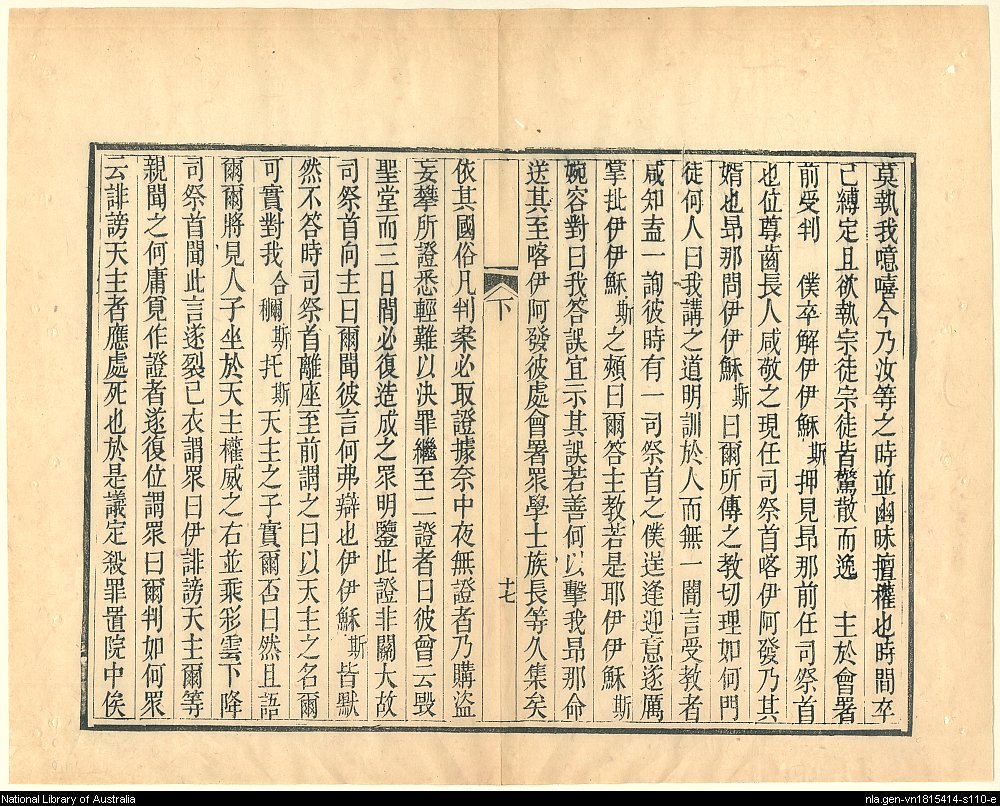 莫執我噫嘻今乃汝等之時並幽昧擅權也時間卒
已縛定且欲執宗徒宗徒皆驚散而逸　主於會署
前受判　僕卒解伊伊穌斯押見昻那前任司祭首
也位尊齒長人咸敬之現任司祭首喀伊阿發乃其
婿也昻那問伊伊穌斯曰爾所傳之教切理如何門
徒何人曰我講之道明訓於人而無一闇言受教者
咸知盍一詢彼時有一司祭首之僕逞逢迎意遂厲
掌批伊伊穌斯之頰曰爾答主教若是耶伊伊穌斯
婉容對曰我答誤宜示其誤若善何以擊我昻那命
送其至喀伊阿發彼處會署眾學士族長等久集矣
下
十七
依其國俗凡判案必取證據奈中夜無證者乃購盜
妄攀所證悉輕難以決罪繼至二證者曰彼曾云毀
聖堂而三日間必復造成之眾明鑒此證非關大故
司祭首向主曰爾聞彼言何弗辯也伊伊穌斯皆默
然不答時司祭首離座至前謂之曰以天主之名爾
可實對我合穪斯托斯天主之子實爾否曰然且語
爾爾將見人子坐於天主權威之右並乘彩雲下降
司祭首聞此言遂裂己衣謂眾曰伊誹謗天主爾等
親聞之何庸覓作證者遂復位謂眾曰爾判如何眾
云誹謗天主者應處死也於是議定殺罪置院中俟
National Library of Australia
nla.gen-vn1815414-s110-e